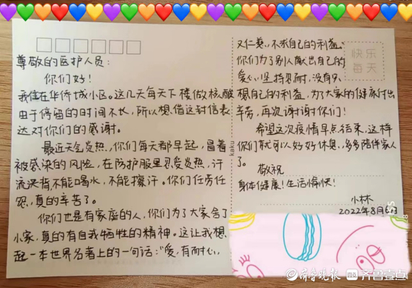 尊敬的医护人员：
你们好！
我住在华侨城小区。这几天每天下楼做核酸
由于停留的时间不长，所以想借这封信表
达对你们的感谢。
最近天气炎热，你们每天都早起，冒着
被感染的风险，在防护服里忍受炎热，汗
流浃背不能喝水，不能擦汗。你们任劳任
怨，真的辛苦了。
你们也是有家庭的人，你们为了大家舍了
小家，真的有自我牺牲的精神。这让我想
起一本世界名著上的一句话：“爱，有耐心，
又仁慈，不求自己的利益。”
你们为了别人献出自己的
爱心，坚持忍耐，没有只
想自己的利益，为大家的健康付出
辛劳，再次谢谢你们！
希望这次疫情早点结束，这样
你们就可以好好休息，多多陪伴家人
了。
敬祝
身体健康！生活愉快！
小林
2022年8月
快乐
每天